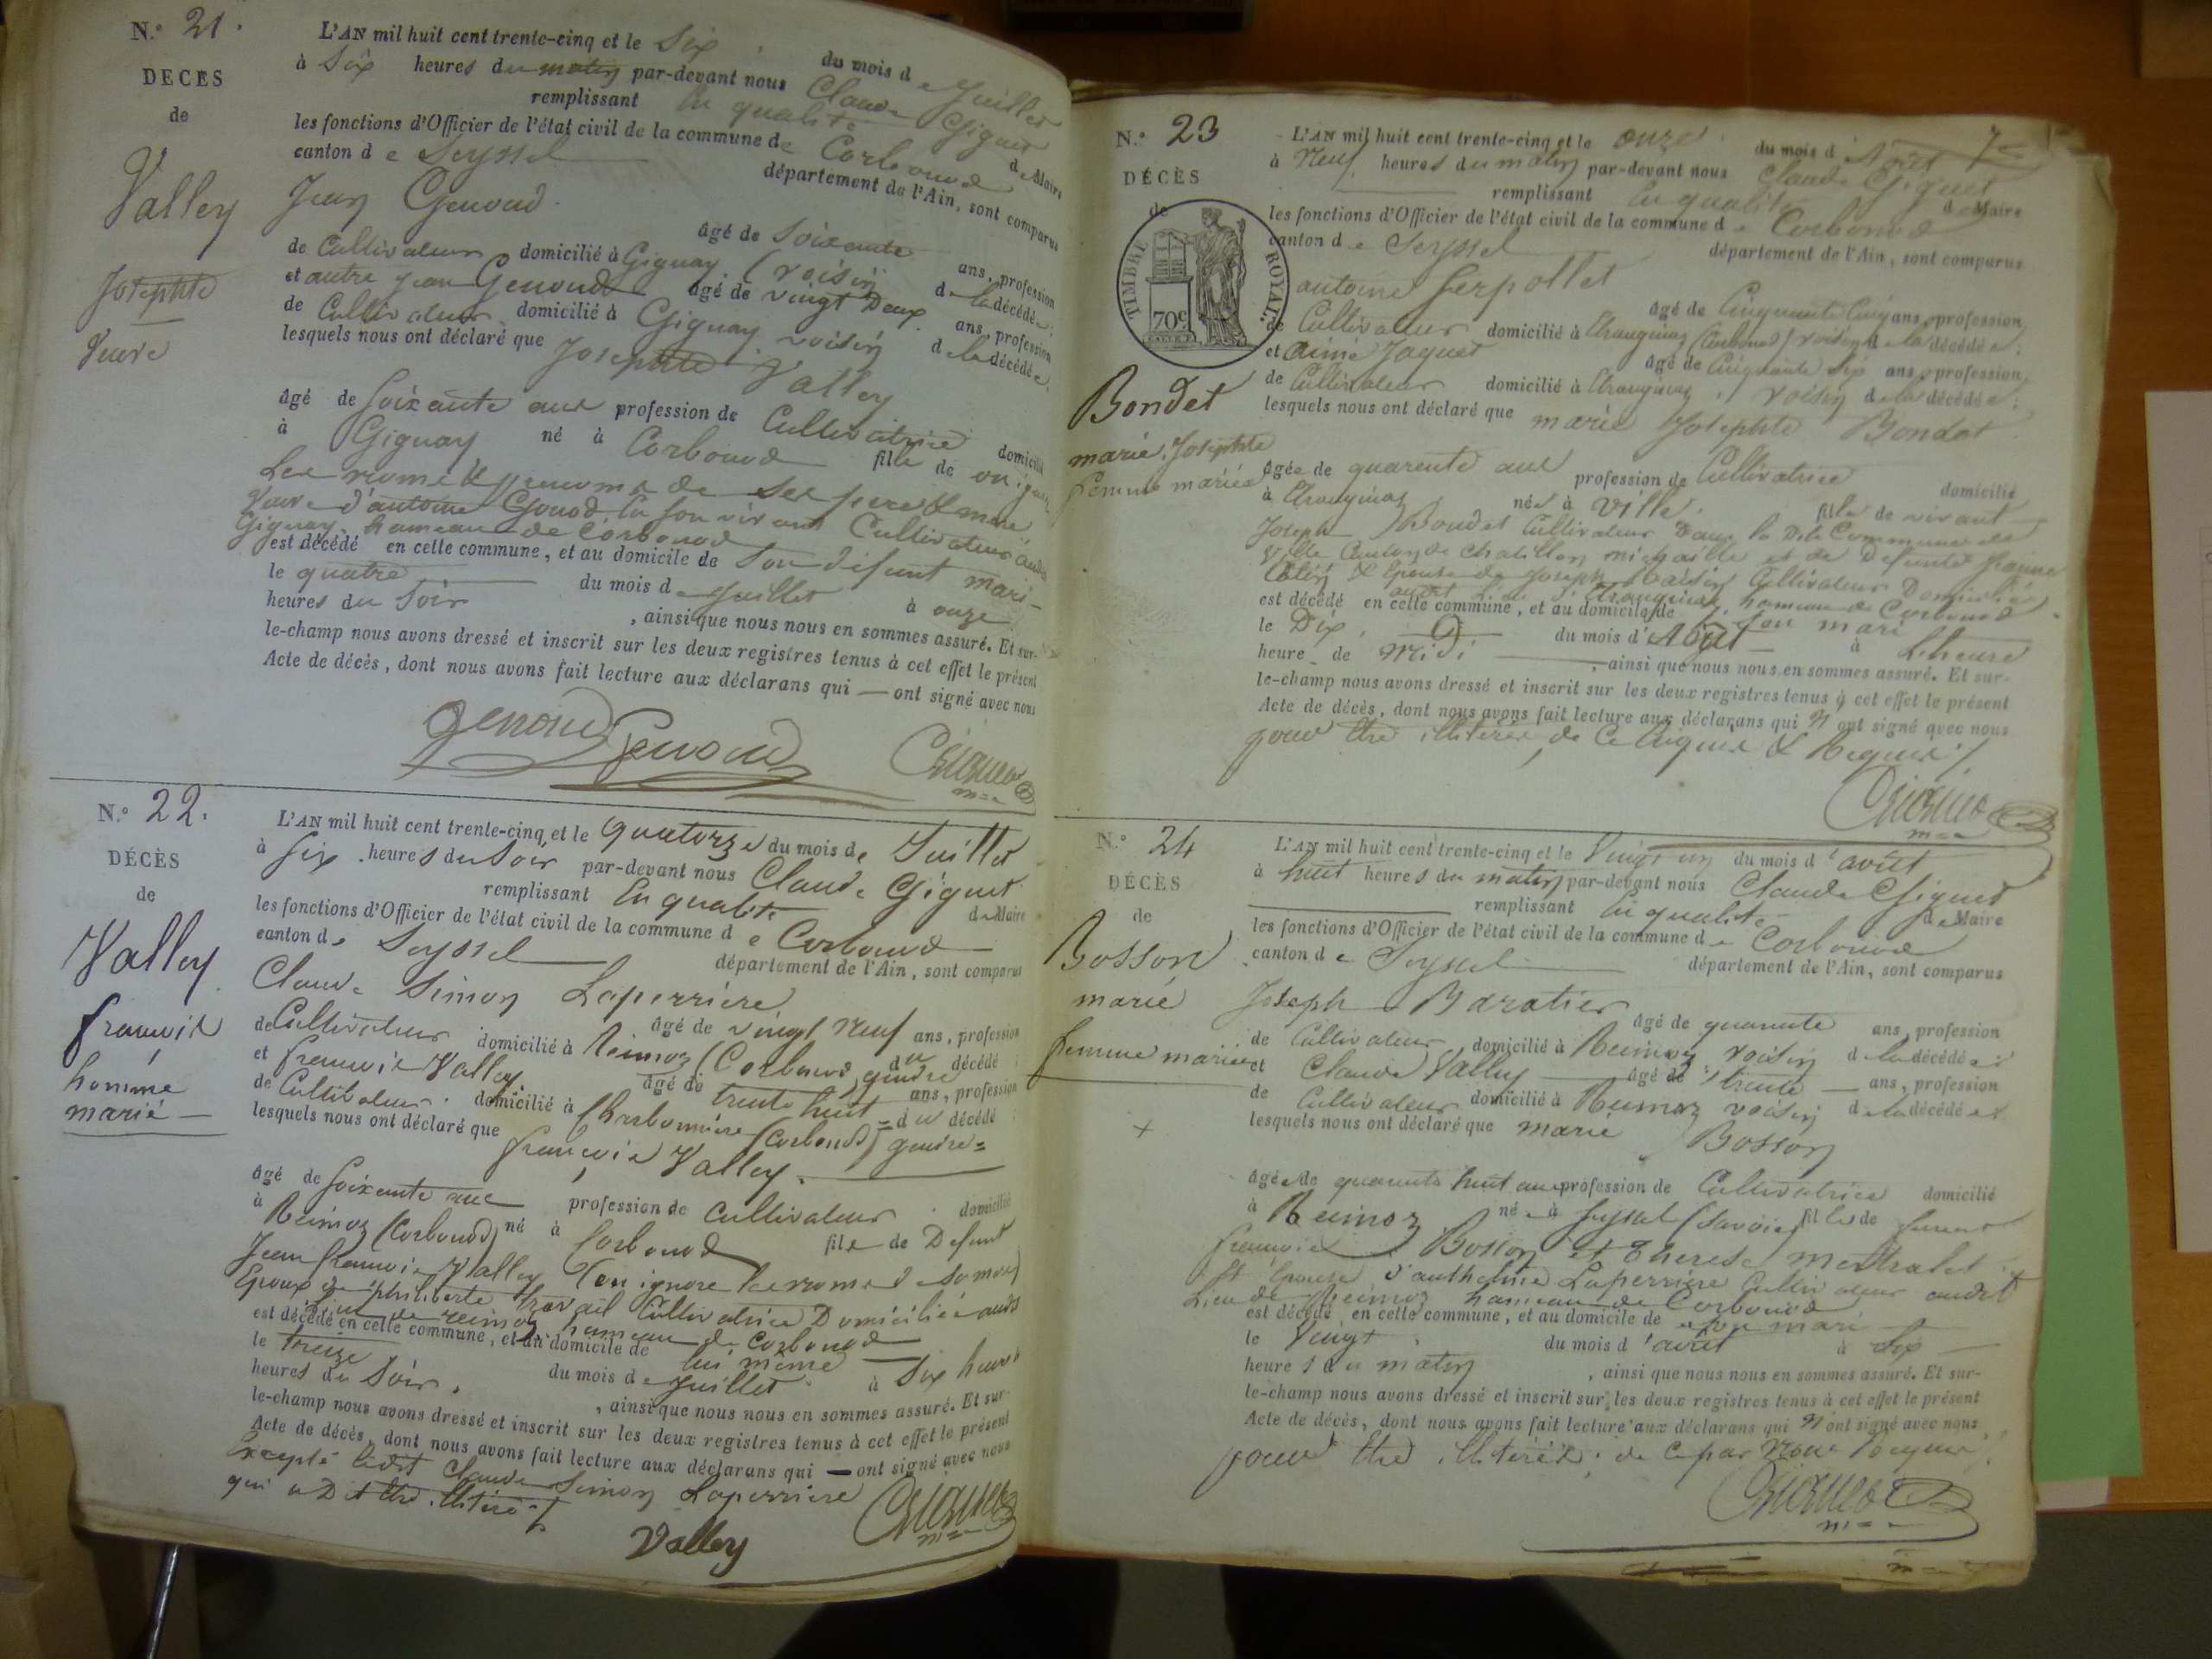 N.° 21.
DECES
de
Valley
Josephte
Veuve
L'AN mil huit cent trente-cinq et le Six du mois de Juillet
à Six heures du matin par-devant nous Claude Giguet
remplissant En qualité de Maire
les fonctions d'Officier de l'état civil de la commune de Corbonod
canton de Seyssel département de l'Ain, sont comparus
Jean Genoud
âgé de Soixante ans, profession
de Cultivateur domicilié à Gignay (voisin de la décédée;
et autre jean Genoud âgé de vingt Deux ans, profession
de Cultivateur domicilié à Gignay voisin de la décédée.
lesquels nous ont déclaré que Josephte Valley
âgé de Soixante ans profession de Cultivatrice domicilié
à Gignay né à Corbonod fille de on ignore
Les noms & prenoms de Ses pere & mere
Veuve d'antoine Genod En Son vivant Cultivateur audit
Gignay hameau de Corbonod
est décédé en cette commune, et au domicile de Son défunt mari
le quatre du mois de Juillet à onze
heures du Soir, ainsi que nous nous en sommes assuré. Et sur-
le-champ nous avons dressé et inscrit sur les deux registres tenus à cet effet le présent
Acte de décès, dont nous avons fait lecture aux déclarans qui — ont signé avec nous
Genoud Genoud Giguet
N.° 22.
DÉCÈS
de
Valley
françois
homme
marié
L'AN mil huit cent trente-cinq et le quatorze du mois de Juillet
à Six heures du Soir par-devant nous Claude Giguet
remplissant En qualité de Maire
les fonctions d'Officier de l'état civil de la commune de Corbonod
canton de Seyssel département de l'Ain, sont comparus
Claude Simon Laperriere
âgé de vingt neuf ans, profession
de Cultivateur domicilié à Reimoz (Corbonod) gendre du décédé
et françois Valley âgé de trente huit ans, profession
de Cultivateur domicilié à Charbonnière (Corbonod) gendre du décédé
lesquels nous ont déclaré que françois Valley.
âgé de Soixante ans profession de Cultivateur domicilié
à Reimoz (Corbonod) né à Corbonod fils de Defunt
Jean françois Valley (on ignore le nom de Sa mere)
Epoux de philiberte travail Cultivatrice Domiciliée audit
lieu de reimoz hameau de Corbonod
est décédé en cette commune, et au domicile de lui même
le treize du mois de Juillet à Six heures
heures du Soir, ainsi que nous nous en sommes assuré. Et sur-
le-champ nous avons dressé et inscrit sur les deux registres tenus à cet effet le présent
Acte de décès, dont nous avons fait lecture aux déclarans qui — ont signé avec nous
Excepté ledit Claude Simon Laperriere
qui a Dit être illitéré
Valley Giguet
N.° 23
DÉCÈS
de
TIMBRE ROYAL
70c
Bondet
marie Josephte
femme mariée
L'AN mil huit cent trente-cinq et le onze du mois d'Août
à Neuf heures du matin par-devant nous Claude Giguet
remplissant En qualité de Maire
les fonctions d'Officier de l'état civil de la commune de Corbonod
canton de Seyssel département de l'Ain, sont comparus
antoine Serpollet
âgé de Cinquante Cinq ans, profession
de Cultivateur domicilié à (Corbonod) voisin de la décédée;
et aimé Jaquet âgé de Cinquante Six ans, profession
de Cultivateur domicilié à voisin de la décédée;
lesquels nous ont déclaré que marie Josephte Bondet
âgée de quarente ans profession de Cultivatrice domicilié
à née à Ville fille de vivant
Joseph Bondet Cultivateur Dans la Dite Commune de
Ville Canton de Chatillon michaille et de Defunte
& Epouse de Joseph Cultivateur Domicilié
hameau de Corbonod
est décédé en cette commune, et au domicile de Son mari
le Dix du mois d'Août à l'heure
heure de Midi, ainsi que nous nous en sommes assuré. Et sur-
le-champ nous avons dressé et inscrit sur les deux registres tenus à cet effet le présent
Acte de décès, dont nous avons fait lecture aux déclarans qui N'ont signé avec nous
pour être illiterés de Ce Enquis & Requis
Giguet
N.° 24
DÉCÈS
de
Bosson
marie
femme mariée
L'AN mil huit cent trente-cinq et le Vingt un du mois d'août
à huit heures du matin par-devant nous Claude Giguet
remplissant En qualité de Maire
les fonctions d'Officier de l'état civil de la commune de Corbonod
canton de Seyssel département de l'Ain, sont comparus
Joseph Baratier âgé de quarante ans, profession
de Cultivateur domicilié à Reimoz voisin de la décédée
et Claude Valley âgé de trente ans, profession
de Cultivateur domicilié à Reimoz voisin de la décédée
lesquels nous ont déclaré que marie Bosson
âgée de quarante huit ans profession de Cultivatrice domicilié
à Reimoz née à Seyssel (Savoie) fille de
françois Bosson et Therese mestralet
Et Epouse d'anthelme Laperriere Cultivateur audit
Lieu de Reimoz hameau de Corbonod
est décédé en cette commune, et au domicile de Son mari
le Vingt du mois d'août à Six
heures du matin, ainsi que nous nous en sommes assuré. Et sur-
le-champ nous avons dressé et inscrit sur les deux registres tenus à cet effet le présent
Acte de décès, dont nous avons fait lecture aux déclarans qui N'ont signé avec nous
pour être illiterés de Ce par Nous Requis
Giguet